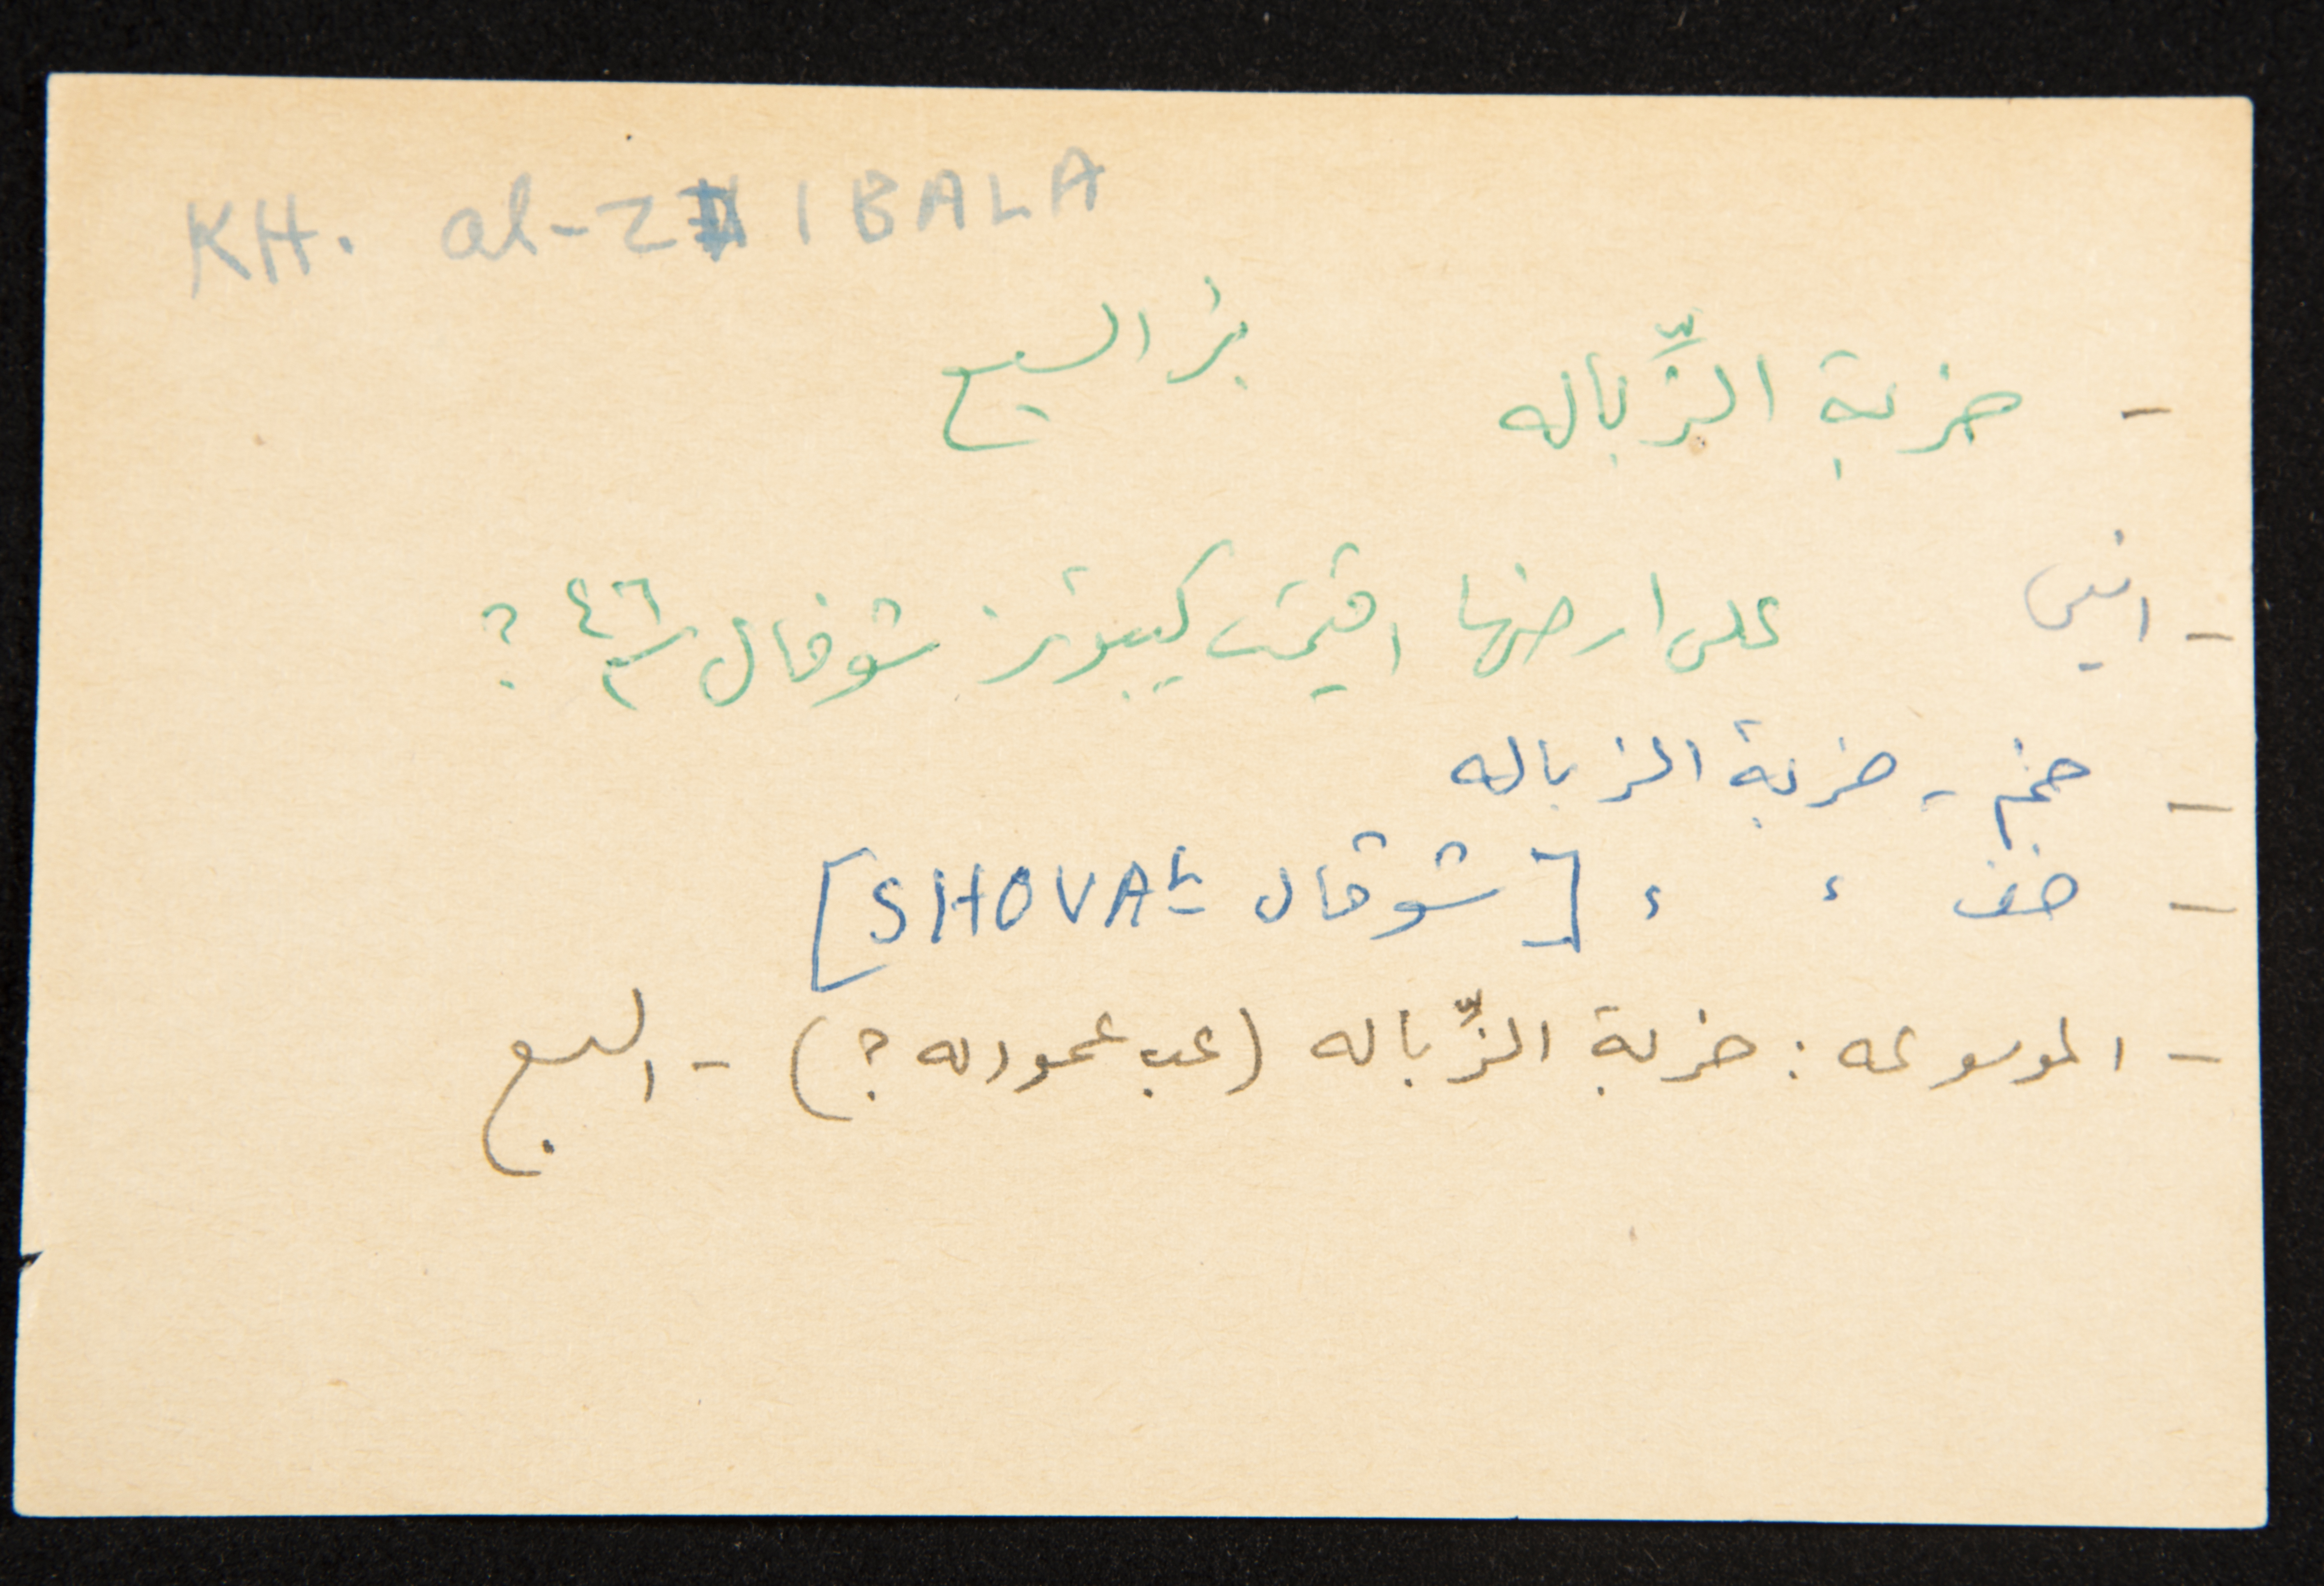 KH. al-ZIBALA
- خربة الزِّباله بئر السبع
- انيس على ارضها اقيمت كيبوتز شوفال ٤٦ ؟
- خم - خربة الزباله
- خف ، ، [شوقال SHOVAL]
- الموسوعه : خربة الزِّباله (عب عموده ؟) - السبع